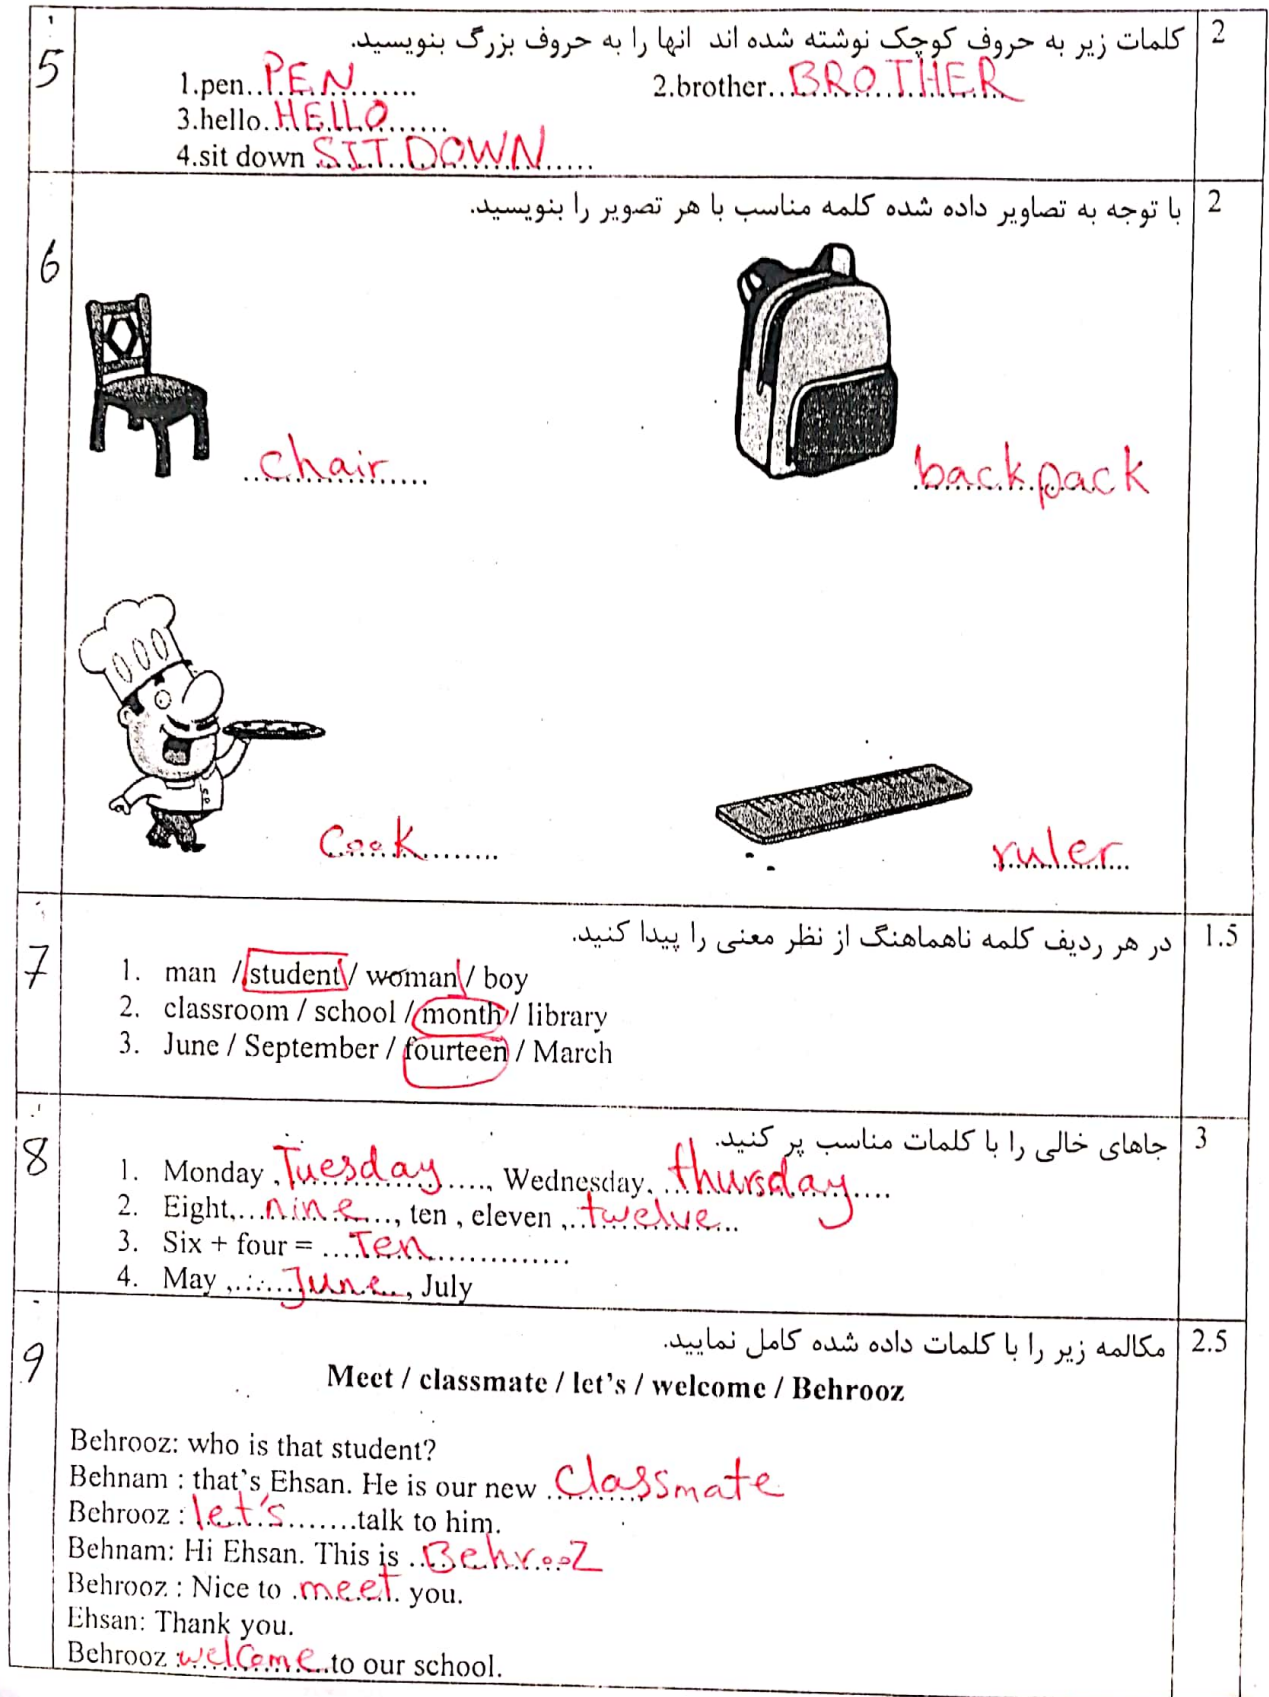 5 کلمات زیر به حروف کوچک نوشته شده اند انها را به حروف بزرگ بنویسید. 2
1.pen..PEN........ 2.brother..BROTHER
3.hello..HELLO........
4.sit down SIT DOWN......
6 با توجه به تصاویر داده شده کلمه مناسب با هر تصویر را بنویسید. 2
chair backpack
cook ruler
7 در هر ردیف کلمه ناهماهنگ از نظر معنی را پیدا کنید. 1.5
1. man / student / woman / boy
2. classroom / school / month / library
3. June / September / fourteen / March
8 جاهای خالی را با کلمات مناسب پر کنید. 3
1. Monday ,Tuesday....., Wednesday, thursday....
2. Eight,...nine..., ten , eleven ,..twelve...
3. Six + four = ...Ten..............
4. May ,......June..., July
9 مکالمه زیر را با کلمات داده شده کامل نمایید. 2.5
Meet / classmate / let's / welcome / Behrooz
Behrooz: who is that student?
Behnam : that's Ehsan. He is our new classmate
Behrooz : let's.......talk to him.
Behnam: Hi Ehsan. This is ..Behrooz
Behrooz : Nice to .meet. you.
Ehsan: Thank you.
Behrooz :welcome..to our school.